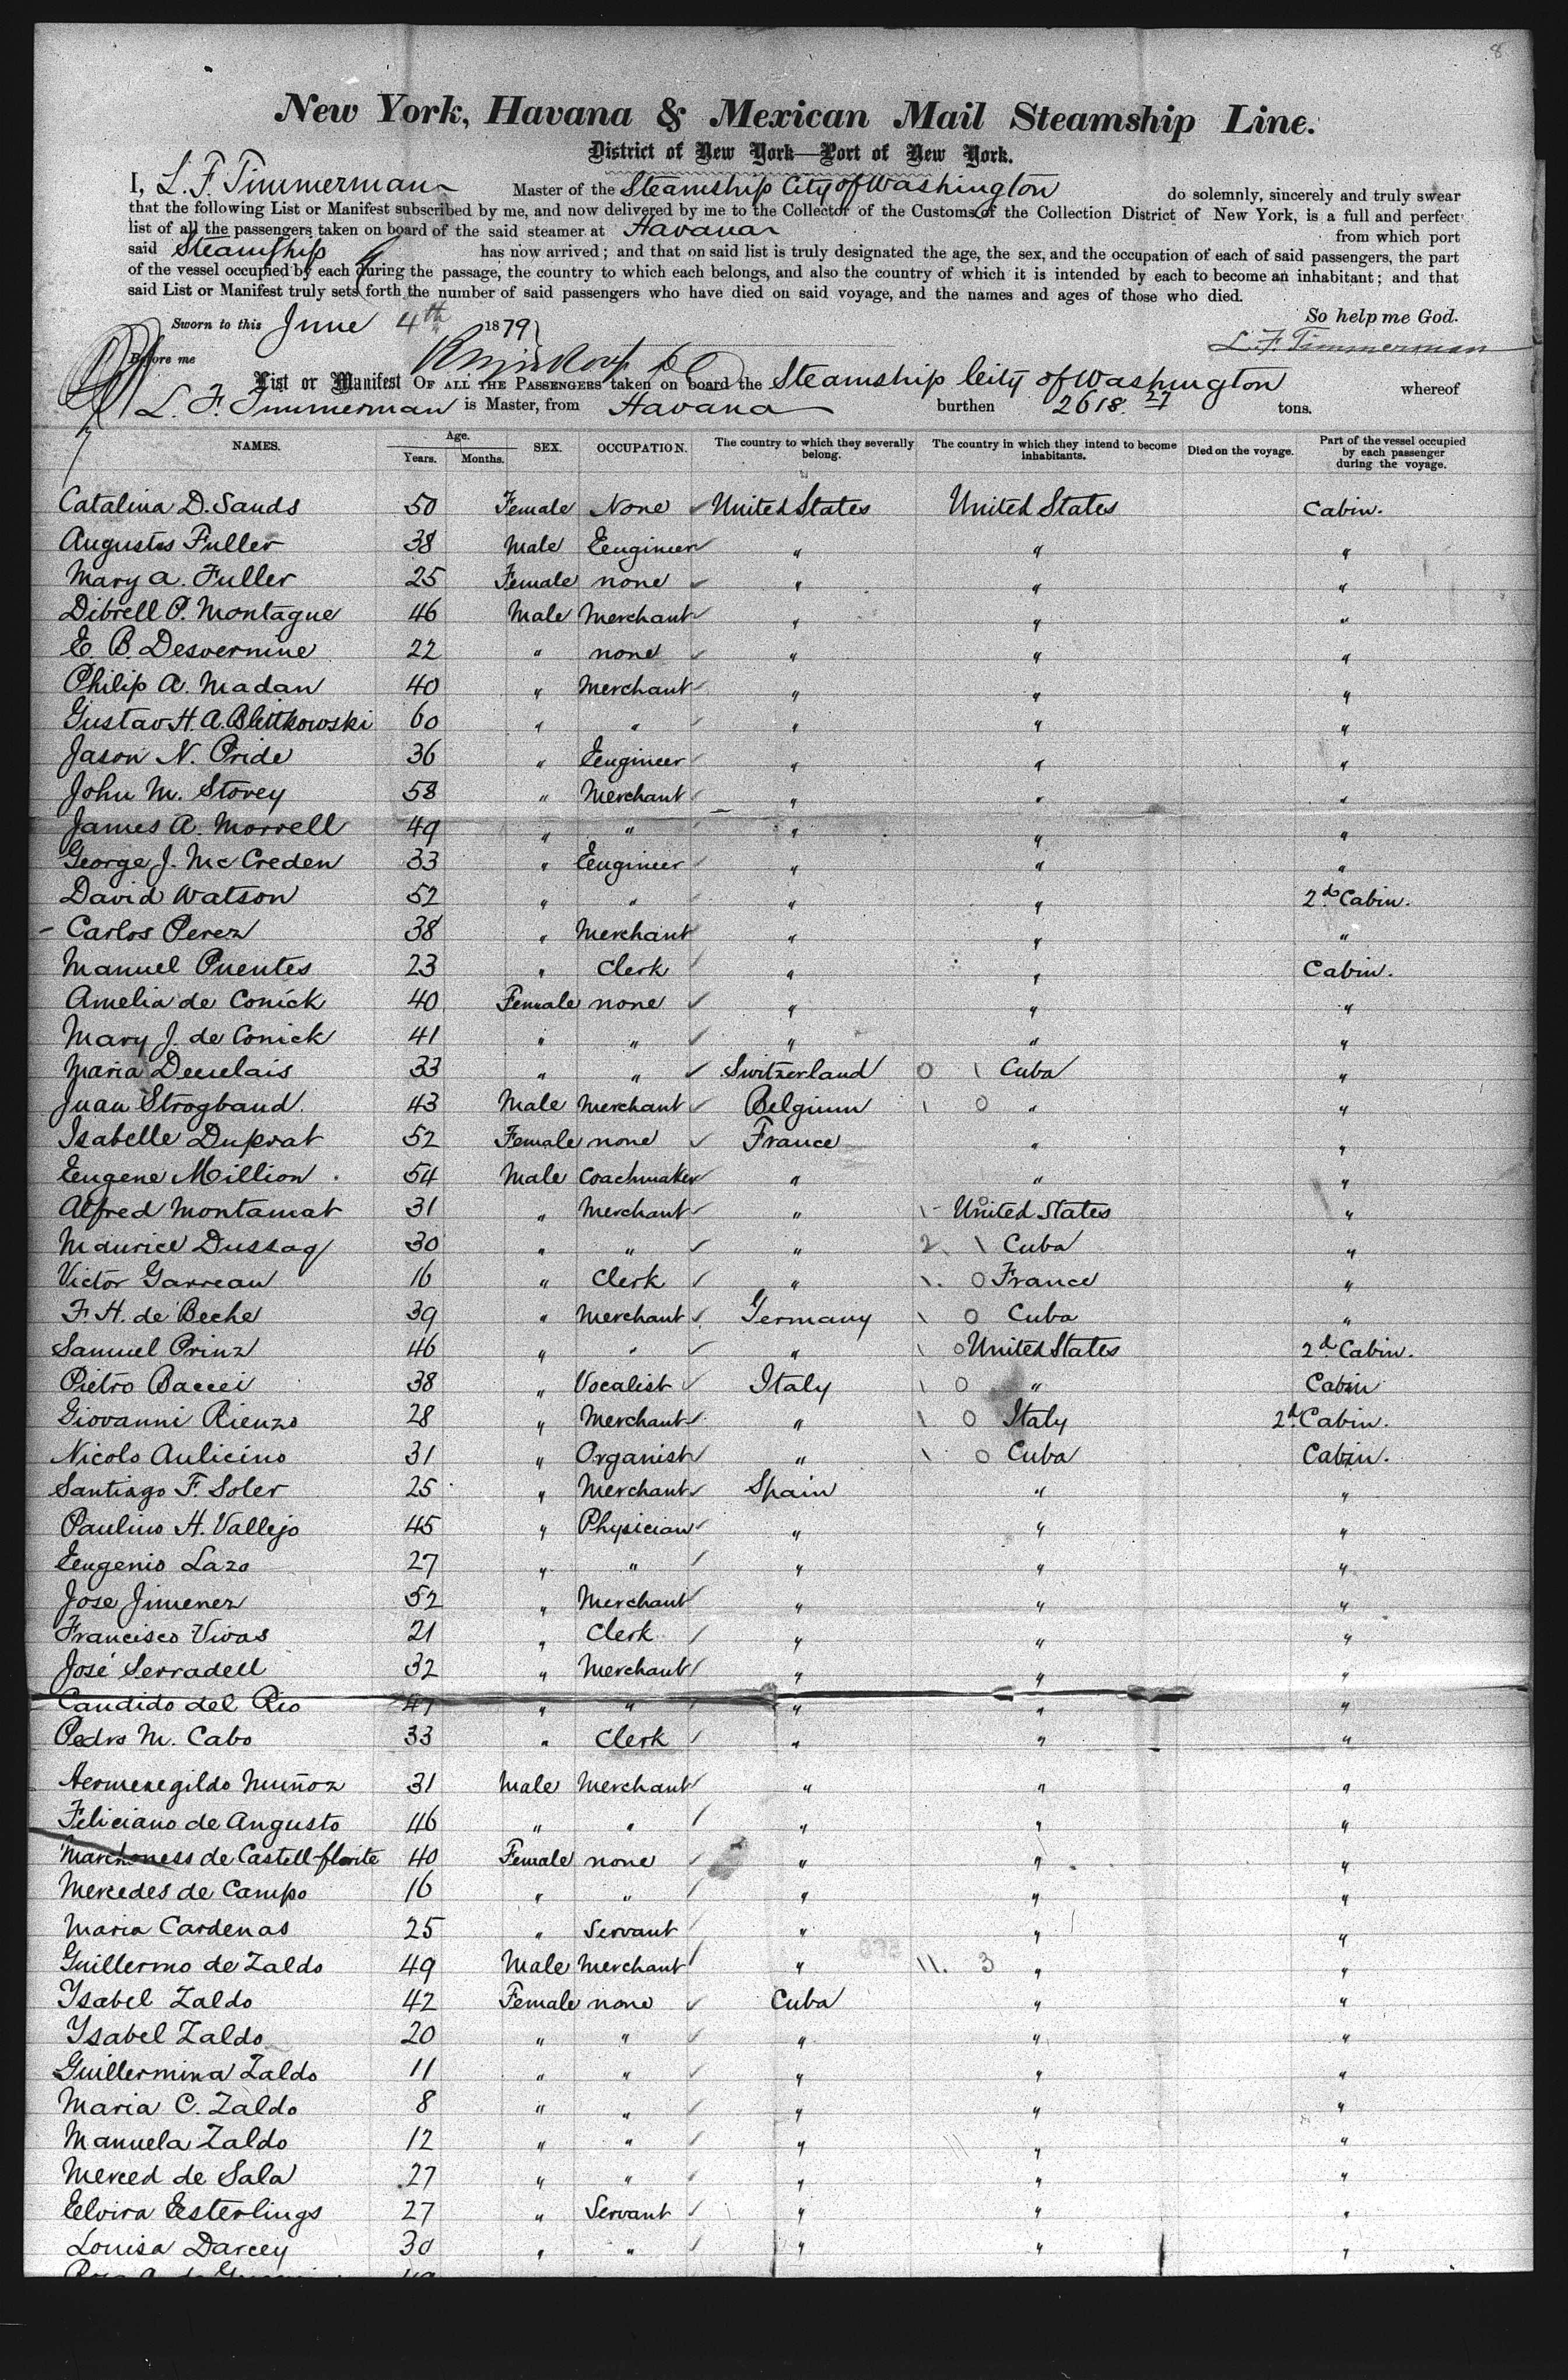 8
New York, Havana & Mexican Mail Steamship Line.
District of New York—Port of New York.
I, L. F. Timmerman Master of the Steamship City of Washington do solemnly, sincerely and truly swear
that the following List or Manifest subscribed by me, and now delivered by me to the Collector of the Customs of the Collection District of New York, is a full and perfect
list of all the passengers taken on board of the said steamer at Havana from which port
said Steamship has now arrived; and that on said list is truly designated the age, the sex, and the occupation of each of said passengers, the part
of the vessel occupied by each during the passage, the country to which each belongs, and also the country of which it is intended by each to become an inhabitant; and that
said List or Manifest truly sets forth the number of said passengers who have died on said voyage, and the names and ages of those who died.
So help me God.
Sworn to this June 4th 1879
L. F. Timmerman
Before me
List or Manifest OF ALL THE PASSENGERS taken on board the Steamship City of Washington whereof
L. F. Timmerman is Master, from Havana burthen 2618. 27 tons.
NAMES. Age. Years. Months. SEX. OCCUPATION. The country to which they severally belong. The country in which they intend to become inhabitants. Died on the voyage. Part of the vessel occupied by each passenger during the voyage.
Catalina D. Sands 50 Female None United States United States Cabin.
Augustus Fuller 38 Male Engineer " " "
Mary A. Fuller 25 Female none " " "
Dibrell P. Montague 46 Male Merchant " " "
E. B. Desvernine 22 " none " " "
Philip A. Madan 40 " Merchant " " "
Gustav H. A. 60 " " " " "
Jason N. Pride 36 " Engineer " " "
John M. Storey 58 " Merchant " " "
James A. Morrell 49 " " " " "
George J. McCreden 33 " Engineer " " "
David Watson 52 " " " " 2d Cabin.
Carlos Perez 38 " Merchant " " "
Manuel Puentes 23 " Clerk " " Cabin.
Amelia de Conick 40 Female none " " "
Mary J. de Conick 41 " " " " "
Maria 33 " " Switzerland 0 1 Cuba "
Juan Strogband. 43 Male Merchant Belgium 1 0 " "
Isabelle Duprat 52 Female none France " "
Eugene Million 54 Male Coachmaker " " "
Alfred Montamat 31 " Merchant " 1 0 United States "
Maurice Dussaq 30 " " " 2. 1 Cuba "
Victor Garreau 16 " Clerk " 1. 0 France "
F. H. de Beche 39 " Merchant Germany 1 0 Cuba "
Samuel Prinz 46 " " " 1 0 United States 2d Cabin.
Pietro Baccei 38 " Vocalist Italy 1 0 " Cabin
Giovanni Rienzo 28 " Merchant " 1 0 Italy 2d Cabin.
Nicolo Aulicino 31 " Organist " 1 0 Cuba Cabin.
Santiago F. Soler 25 " Merchant Spain " "
Paulino H. Vallejo 45 " Physician " " "
Eugenio Lazo 27 " " " " "
Jose Jimenez 52 " Merchant " " "
Francisco Vivas 21 " Clerk " " "
José Serradell 32 " Merchant " " "
Candido del Rio 47 " " " " "
Pedro M. Cabo 33 " Clerk " " "
Hermenegildo Muñoz 31 Male Merchant " " "
Feliciano de Angusto 46 " " " " "
Marchoness de Castell-florite 40 Female none " " "
Mercedes de Campo 16 " " " " "
Maria Cardenas 25 " Servant " " "
Guillermo de Zaldo 49 Male Merchant " 11. 3 " "
Ysabel Zaldo 42 Female none Cuba " "
Ysabel Zaldo 20 " " " " "
Guillermina Zaldo 11 " " " " "
Maria C. Zaldo 8 " " " " "
Manuela Zaldo 12 " " " " "
Merced de Sala 27 " " " " "
Elvira Esterlings 27 " Servant " " "
Louisa Darcey 30 " " " " "